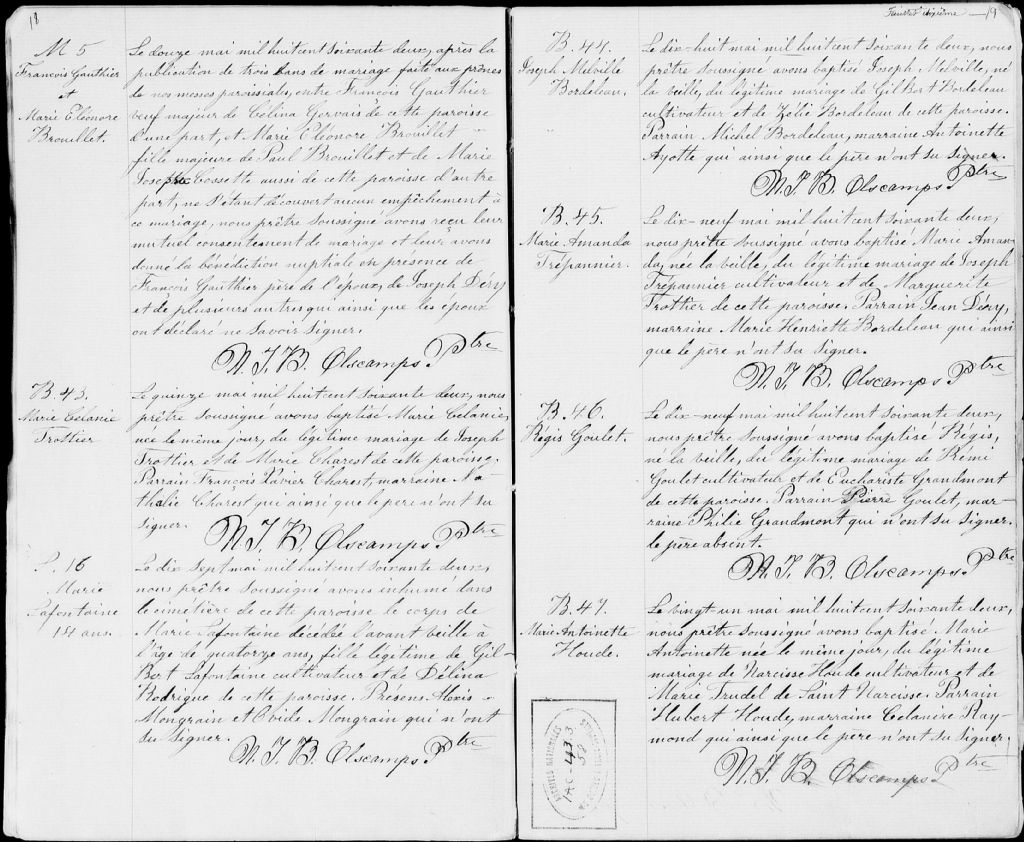 18
M 5
François Gauthier
et
Marie Eléonore
Brouillet.
Le douze mai mil huit cent soixante deux, après la
publication de trois bans de mariage faite aux prônes
de nos messes paroissiales, entre François Gauthier
veuf majeur de Célina Gervais de cette paroisse
d'une part, et Marie Eléonore Brouillet
fille majeure de Paul Brouillet et de Marie
Josephte Cossette aussi de cette paroisse d'autre
part, ne s'étant découvert aucun empêchement à
ce mariage, nous prêtre soussigné avons reçu leur
mutuel consentement de mariage et leur avons
donné la bénédiction nuptiale en presence de
François Gauthier père de l'époux, de Joseph Déry
et de plusieurs autres qui ainsi que les époux
ont déclaré ne savoir signer.
M. J. B. Olscamps Ptre
B. 43.
Marie Celanie
Trottier
Le quinze mai mil huit cent soixante deux, nous
prêtre soussigné avons baptisé Marie Celanie,
née le même jour, du légitime mariage de Joseph
Trottier et de Marie Charest de cette paroisse.
Parrain François Xavier Charest, marraine Na-
thalie Charest qui ainsi que le pere n'ont su
signer.
M. J. B. Olscamps Ptre
S. 16
Marie
Lafontaine
14 ans.
Le dix sept mai mil huit cent soixante deux,
nous prêtre soussigné avons inhumé dans
le cimétière de cette paroisse le corps de
Marie Lafontaine décédée l'avant veille à
l'âge de quatorze ans, fille légitime de Gil-
bert Lafontaine cultivateur et de Délina
Rodrigue de cette paroisse. Présens Alexis
Mongrain et Ovide Mongrain qui n'ont
su signer.
M. J. B. Olscamps Ptre
Feuillet dixième — 19
B. 44.
Joseph Melville
Bordeleau.
Le dix-huit mai mil huit cent soixante deux, nous
prêtre soussigné avons baptisé Joseph Melville, né
la veille, du légitime mariage de Gilbert Bordeleau
cultivateur et de Zoé Bordeleau de cette paroisse.
Parrain Michel Bordeleau, marraine Antoinette
Ayotte qui ainsi que le père n'ont su signer.
M. J. B. Olscamps Ptre
B. 45.
Marie Amanda
Trépannier.
Le dix-neuf mai mil huit cent soixante deux,
nous prêtre soussigné avons baptisé Marie Aman-
da, née la veille, du légitime mariage de Joseph
Trépannier cultivateur et de Marguerite
Trottier de cette paroisse. Parrain Jean Déry,
marraine Marie Henriette Bordeleau qui ainsi
que le père n'ont su signer.
M. J. B. Olscamps Ptre
B. 46.
Régis Goulet.
Le dix-neuf mai mil huit cent soixante deux,
nous prêtre soussigné avons baptisé Régis,
né la veille, du légitime mariage de Rémi
Goulet cultivateur et de Euchariste Grandmont
de cette paroisse. Parrain Pierre Goulet, mar-
raine Philie Grandmont qui n'ont su signer.
le père absent.
M. J. B. Olscamps Ptre
B. 47.
Marie Antoinette
Houde.
Le vingt-un mai mil huit cent soixante deux,
nous prêtre soussigné avons baptisé Marie
Antoinette née le même jour, du légitime
mariage de Narcisse Houde cultivateur et de
Marie Trudel de Saint Narcisse. Parrain
Hubert Houde, marraine Celanire Ray-
mond qui ainsi que le pere n'ont su signer.
M. J. B. Olscamps Ptre
ARCHIVES NATIONALES